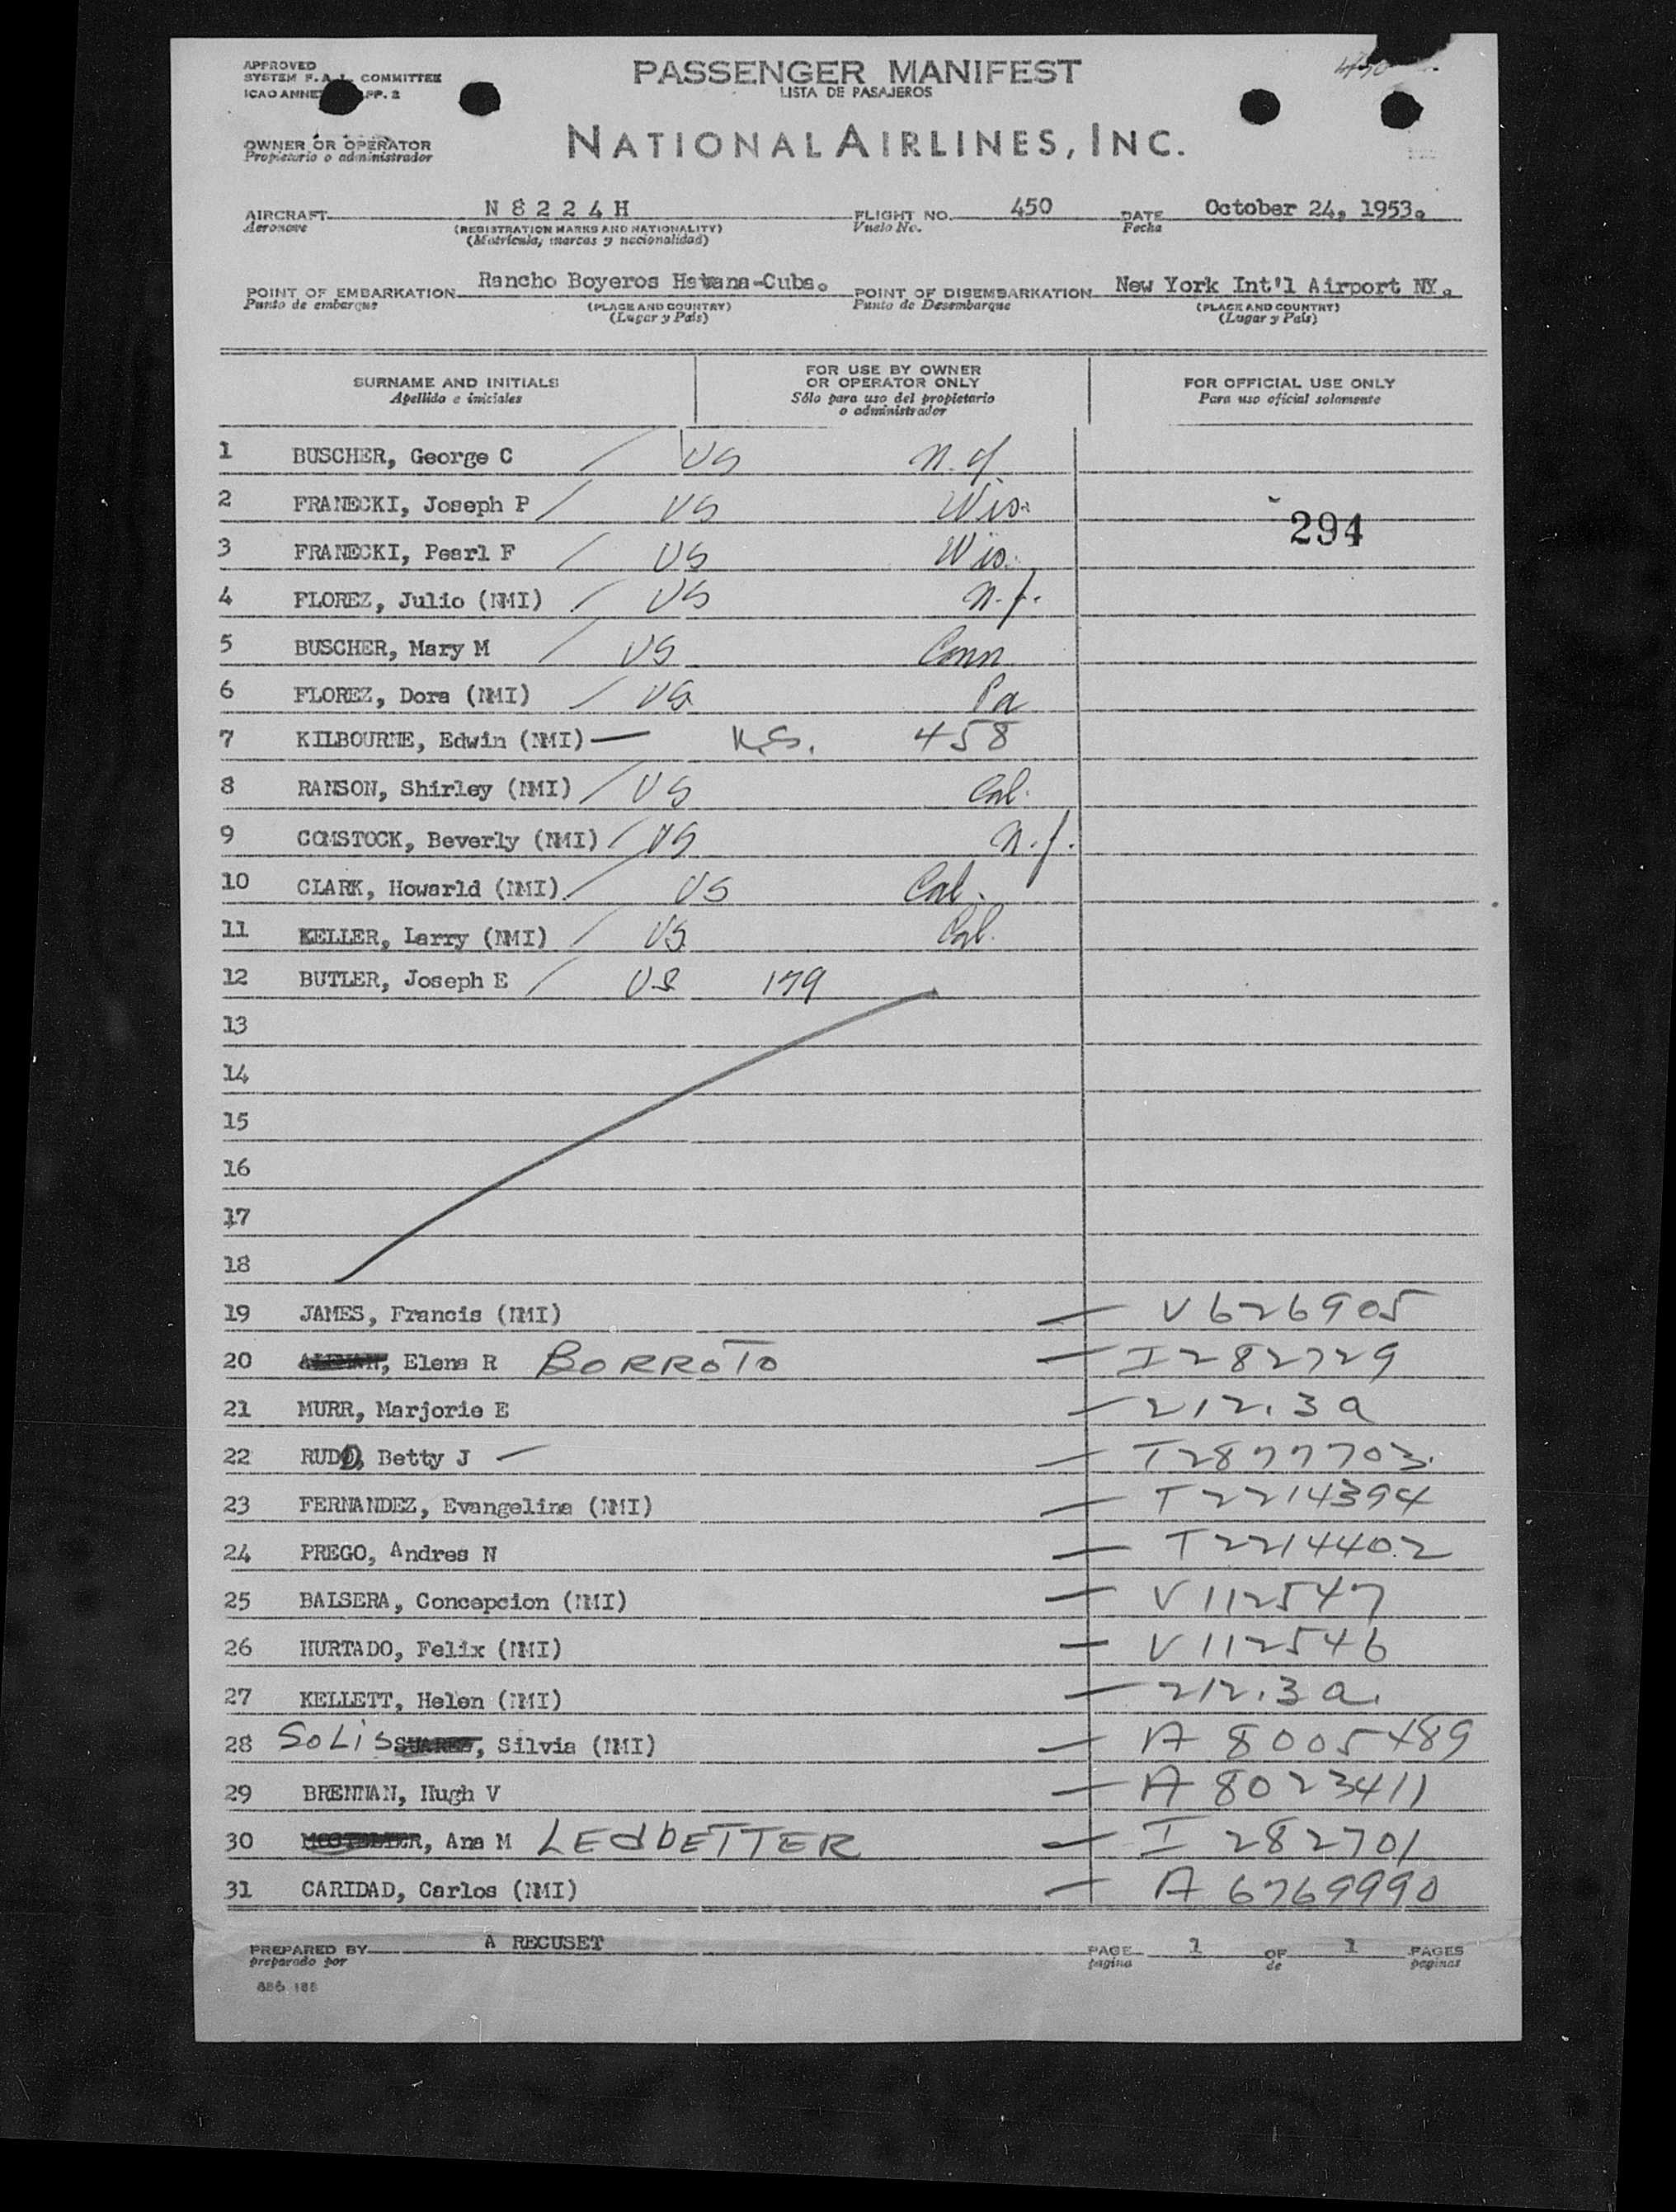 APPROVED
SYSTEM F.A.L. COMMITTEE
ICAO ANNEX APP. 2
450
PASSENGER MANIFEST
LISTA DE PASAJEROS
OWNER OR OPERATOR
Propietario o administrador
NATIONAL AIRLINES, INC.
AIRCRAFT N 8 2 2 4 H FLIGHT NO. 450 DATE October 24, 1953.
Aeronave (REGISTRATION MARKS AND NATIONALITY) Vuelo No. Fecha
(Matrícula, marcas y nacionalidad)
POINT OF EMBARKATION Rancho Boyeros Havana-Cuba. POINT OF DISEMBARKATION New York Int'l Airport NY.
Punto de embarque (PLACE AND COUNTRY) Punto de Desembarque (PLACE AND COUNTRY)
(Lugar y País) (Lugar y País)
SURNAME AND INITIALS
Apellido e iniciales
FOR USE BY OWNER
OR OPERATOR ONLY
Sólo para uso del propietario
o administrador
FOR OFFICIAL USE ONLY
Para uso oficial solamente
1 BUSCHER, George C / US N.Y.
2 FRANECKI, Joseph P / US Wis.
294
3 FRANECKI, Pearl F / US Wis.
4 FLOREZ, Julio (NMI) / US N.J.
5 BUSCHER, Mary M / US Conn
6 FLOREZ, Dora (NMI) / US Pa
7 KILBOURNE, Edwin (NMI) — U.S. 458
8 RANSON, Shirley (NMI) / US Cal.
9 COMSTOCK, Beverly (NMI) / US N.J.
10 CLARK, Howarld (NMI) / US Cal.
11 KELLER, Larry (NMI) / US Cal.
12 BUTLER, Joseph E / US 179
13
14
15
16
17
18
19 JAMES, Francis (NMI) — V626905
20 , Elena R BORROTO — I282729
21 MURR, Marjorie E — 212.3a
22 RUDD, Betty J — — T2877703.
23 FERNANDEZ, Evangelina (NMI) — T2214394
24 PREGO, Andres N — T2214402
25 BALSERA, Concepcion (NMI) — V112547
26 HURTADO, Felix (NMI) — V112546
27 KELLETT, Helen (NMI) — 212.3a.
28 SOLIS SUAREZ, Silvia (NMI) — A 8005489
29 BRENNAN, Hugh V — A 8023411
30 , Ana M LEDBETTER — I 282701
31 CARIDAD, Carlos (NMI) — A 6769990
PREPARED BY A RECUSET PAGE 1 OF 1 PAGES
preparado por pagina de paginas